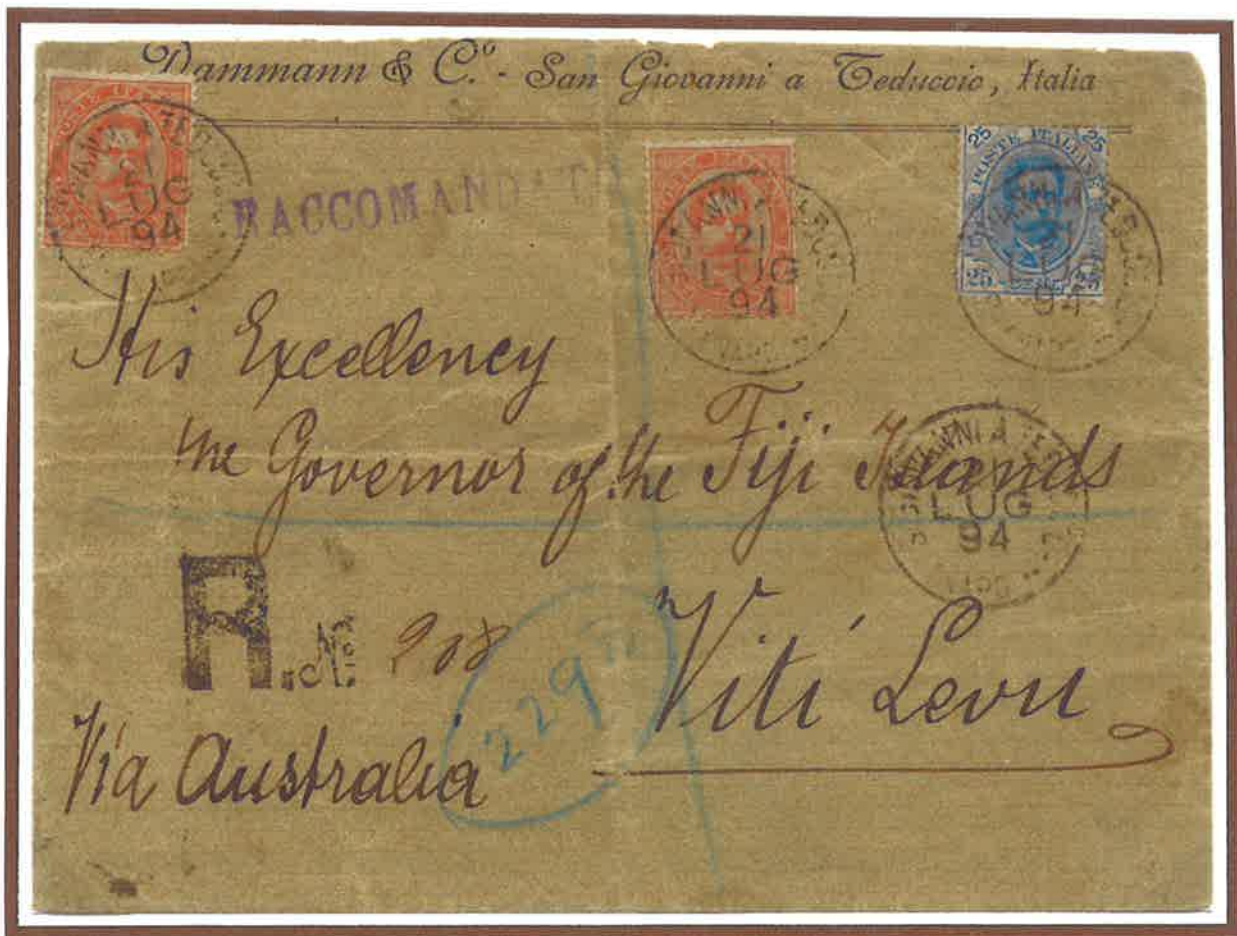 Dammann & Cº - San Giovanni a Teduccio, Italia
RACCOMANDAT
25 25
POSTE ITALIANE
25 25
21
LUG
94
21
LUG
94
94
His Excellency
the Governor of the Fiji Islands
LUG
94
R. Nº 208
229
Viti Levu
Via Australia